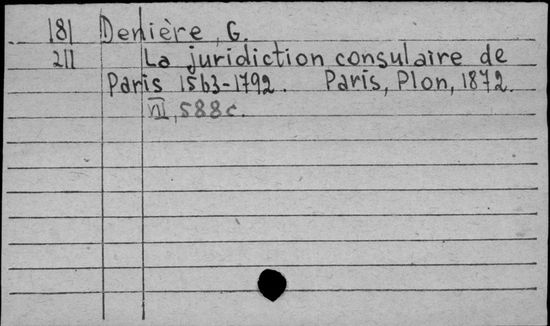 181 Denière, G.
211 La juridiction consulaire de
Paris 1563-1792. Paris, Plon, 1872.
VII, 588 c.